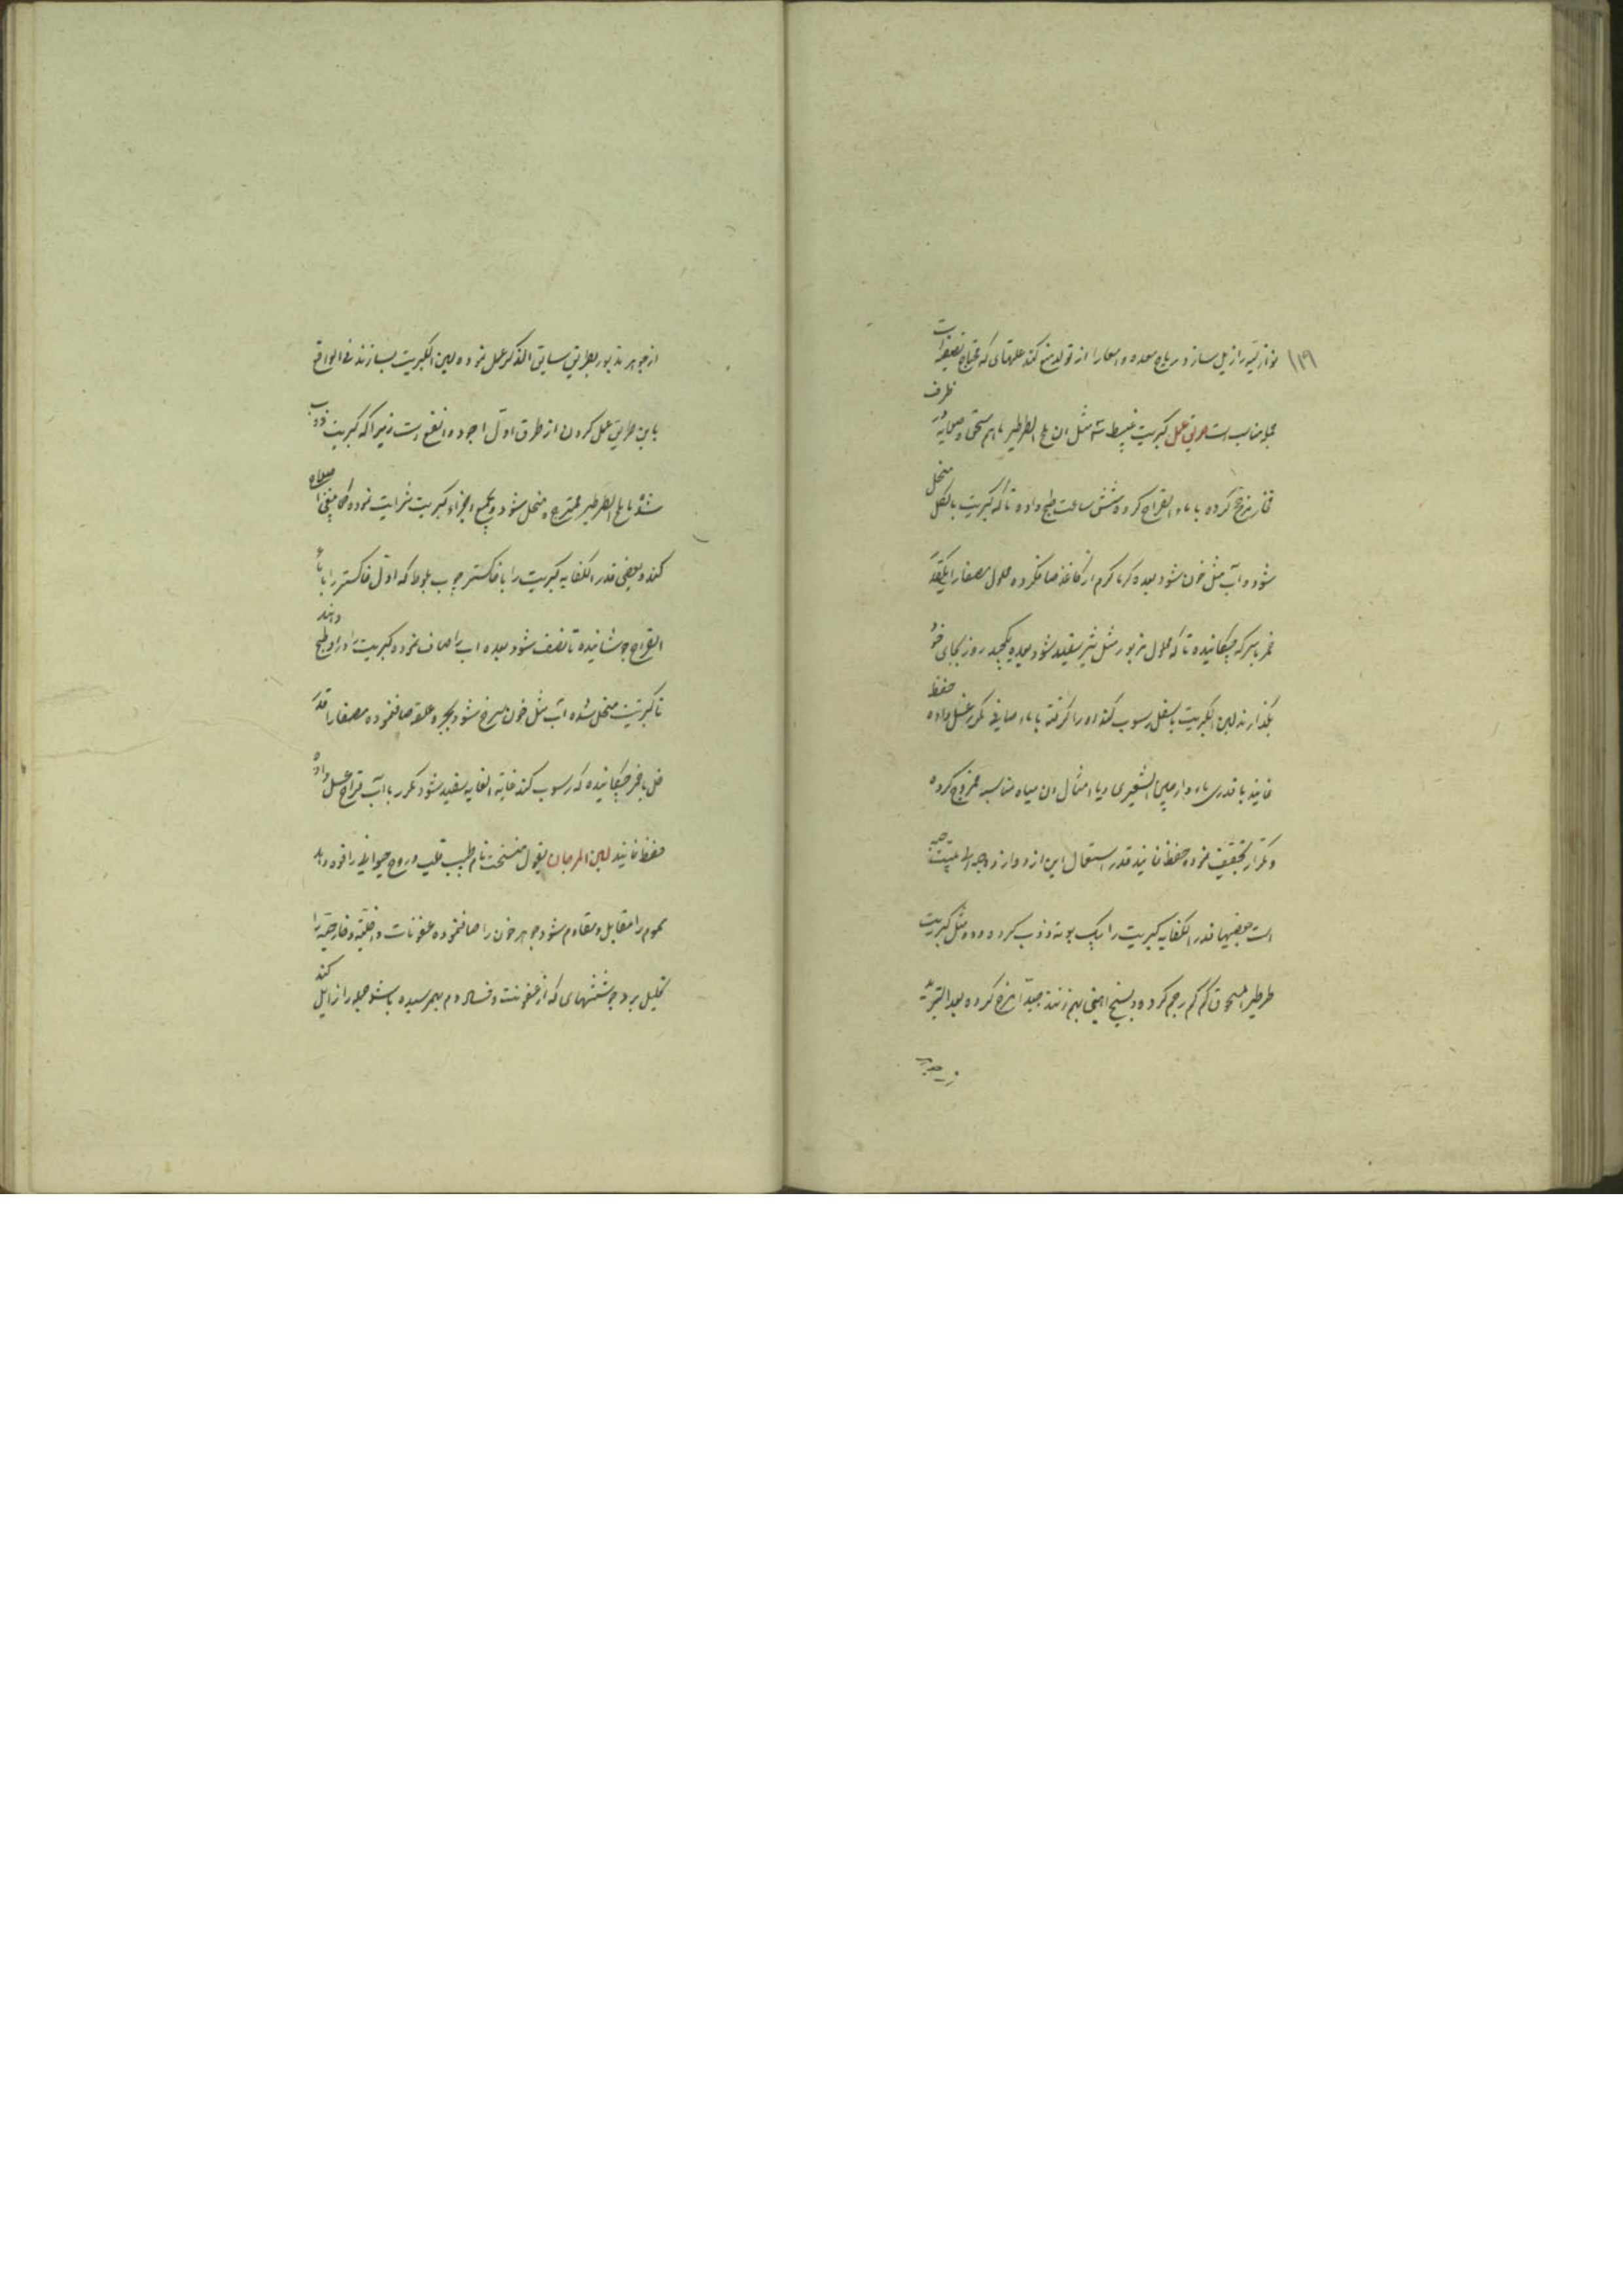 ۱۱۹
خنازیریه را زایل سازد ریاح معده و امعا را از تولد منع کند علتهای که محتاج تصفیه است
جمله مناسب است طریق عمل کبریت مثل آن ملح الطرطیر باهم سحق و صلایه در ظرف
فخار مزج کرده با ماء القراح کرده شش ساعت طبخ داده تا که کبریت بالکل منحل
شود و آب مثل خون شود بعده گرماگرم از کاغذ صاف کرده محلول مصفا را
خمر یا سرکه چکانیده تا که محلول مزبور مثل شیر سفید شود بعده یکچند روز بجای خود
بگذارند لبن الکبریت باسفل رسوب کند او را گرفته با ماء صافی مکرر غسل داده حفظ
نمایند با قدری ماء دارچین الشعیری و یا امثال آن میاه مناسبه ممزوج کرده
و تکرار تجفیف نموده حفظ نمایند قدر استعمال این از دوازده حبه الی بیست حبه
است بعضیها قدر الکفایه کبریت را بیک بوته ذوب کرده و دو مثل کبریت
طرطیر المسحوق کم کم رجم کرده و بسیخ آهنی بهم زنند جیدا مزج کرده بعد التبرید
از جوهر مذبور بطریق سابق الذکر عمل نموده لبن الکبریت بسازند فی الواقع
باین طریق عمل کردن از طرق اول اجود و انفع است زیرا که کبریت ذوب
شده با ملح الطرطیر ممتزج و منحل شود و بجمیع اجزاء کبریت سرایت نموده کما ینبغی اصلاح
کند و بعضی قدر الکفایه کبریت را با خاکستر چوب بلوط که اول خاکستر را با ماء
القراح جوشانیده تا نصف شود بعده آب را صاف نموده کبریت را در او طبخ دهند
تا کبریت منحل شده آب مثل خون سرخ شود بعجر و علقه صاف نموده مصفا را قدر
خل یا خمر چکانیده که رسوب کند غایة الغایه سفید شود مکرر با آب قراح غسل داده
حفظ نمایند لبن المرجان بقول منسخت نام طبیب قلب و روح حیوانی را قوه دهد
سموم را مقابل و مقاوم شود جوهر خون را صاف نموده عفونات داخلیه و خارجیه را
تحلیل برد جوششهای که از عفونت و فساد دم بهم رسیده باشد جمله را زایل کند